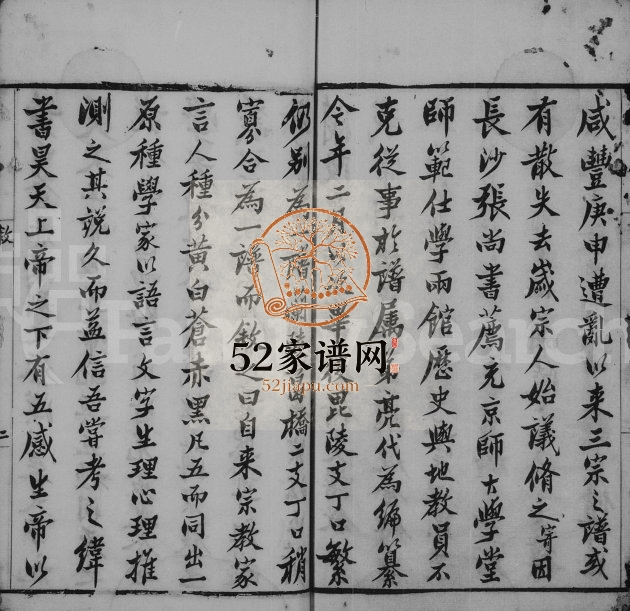 咸豐庚申遭亂以來三宗之譜或
有散失去歲宗人始議脩之寄因
長沙張尚書薦充京師大學堂
師範仕學兩館歷史輿地教員不
克從事於譜属弟亮代為編纂
今年二月 毘陵支丁口繁
仍别為 橋二支丁口稍
寡合為一譜而敘之曰自来宗教家
言人種分黃白蒼赤黑凡五而同出一
原種學家以語言文字生理心理推
測之其説久而益信吾嘗考之緯
書昊天上帝之下有五感生帝以
敘
二
52家谱网
52jiapu.com
FamilySearch